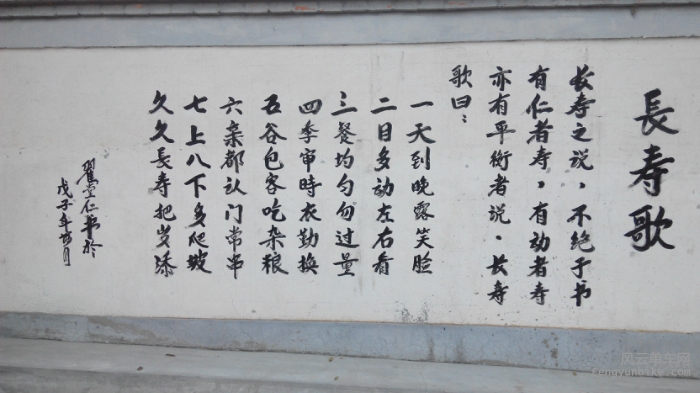 長寿歌
长寿之说，不绝于书
有仁者寿，有动者寿
亦有平衡者说。长寿
歌曰：
一天到晚露笑脸
二目多动左右看
三餐均匀勿过量
四季审時衣勤换
五谷包容吃杂粮
六亲都认门常串
七上八下多爬坡
久久長寿把岁添
戊子年
风云单车网
fengyunbike.com